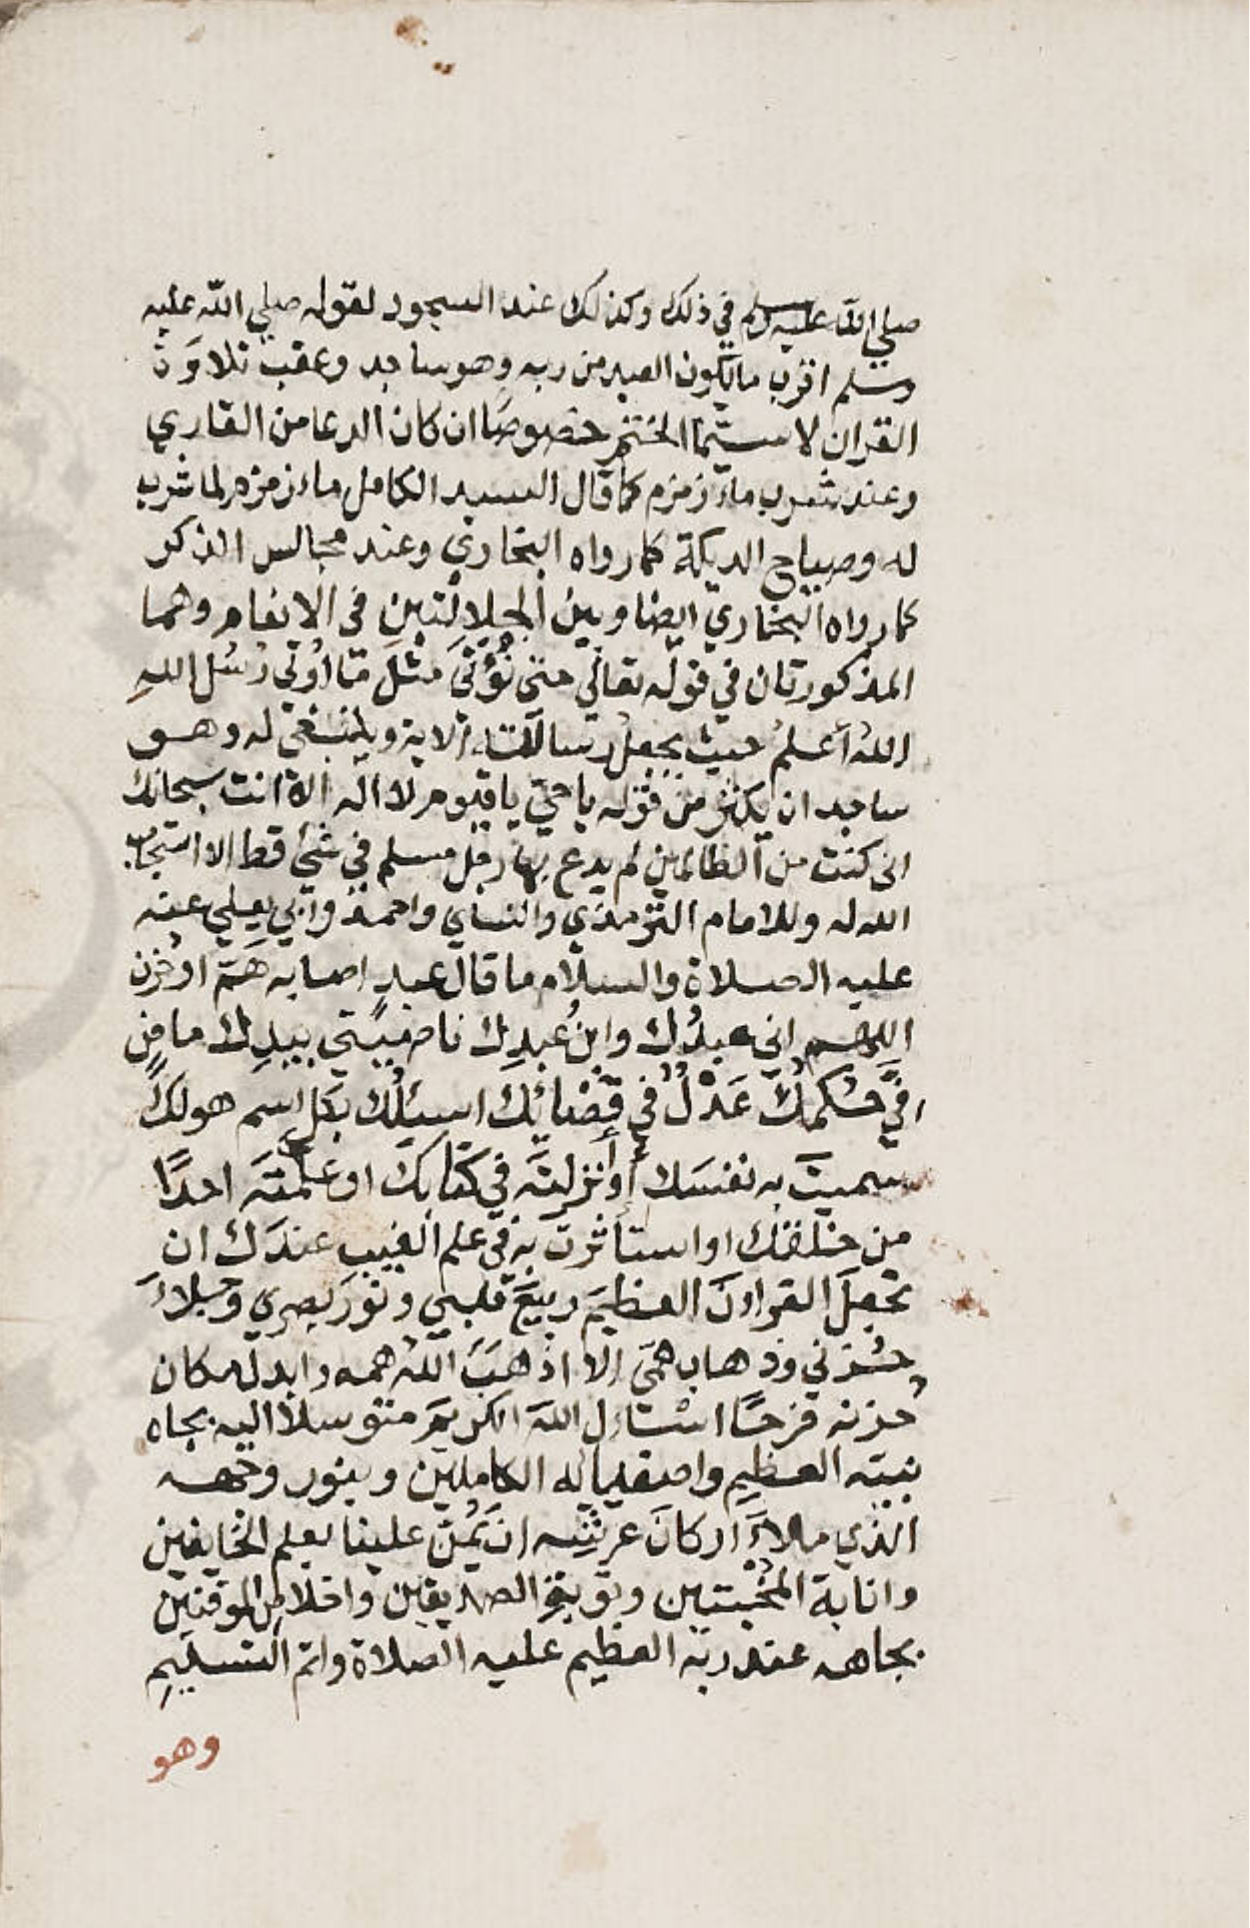 صلي الله عليه وسلم في ذلك وكذلك عند السجود لقوله صلي الله عليه
وسلم اقرب ما يكون العبد من ربه وهو ساجد وعقب تلاوة
القران لا سيّما الختم خصوصًا ان كان الدعا من القاري
وعند شرب ماء زمزم كما قال السيد الكامل ماء زمزم لما شرب
له وصياح الديكة كما رواه البخاري وعند مجالس الذكر
كما رواه البخاري ايضا وبين الجلالتين في الانعام وهما
المذكورتان في قوله تعالي حتى نُؤْتَى مثلَ مَا اُوتي رُسُل اللهِ
اللهُ أعلمُ حيث يجعلُ رسالته الاية وينبغي له وهو
ساجد ان يكثر من قوله يا حيّ يا قيوم لا اله الا انت سبحانك
اني كنت من الظالمين لم يدع بها رجل مسلم في شئ قط الا استجاب
الله له وللامام الترمذي والنسأي واحمد وابي يعلي عنه
عليه الصلاة والسلام ما قال عبد اصابه هَمّ او حُزن
اللهم اني عبدُك وابنُ عبدِك ناصيتي بيدِك ماضٍ
فيَّ حُكمكَ عَدْلٌ فيَّ قَضاؤكَ اسئلُك بكل اسم هو لكَ
سميتَ به نفسَك أو أنزلتَه في كتابكَ او علّمتَه احدًا
من خلقك او استأثرتَ به في علم الغيبِ عندَك ان
تجعلَ القراءنَ العظيمَ ربيعَ قلبي ونورَ بصري وجلاءَ
حُزني وذهاب همّي إلا اذهبَ اللهُ همه وابدله مكان
حزنه فرحًا اسْئَل اللهَ الكريمَ متوسلًا اليه بجاه
نبيّه العظيمِ واصفيائه الكاملين وبنور وجهه
الذي ملاءَ اركانَ عرشِه ان يَمُنّ علينا بعلم الخايفين
وانابة المخْبتين وتوبة الصديقين واخلاص الموقنين
بجاهه عند ربه العظيم عليه الصلاة واتم التسليمِ
وهو